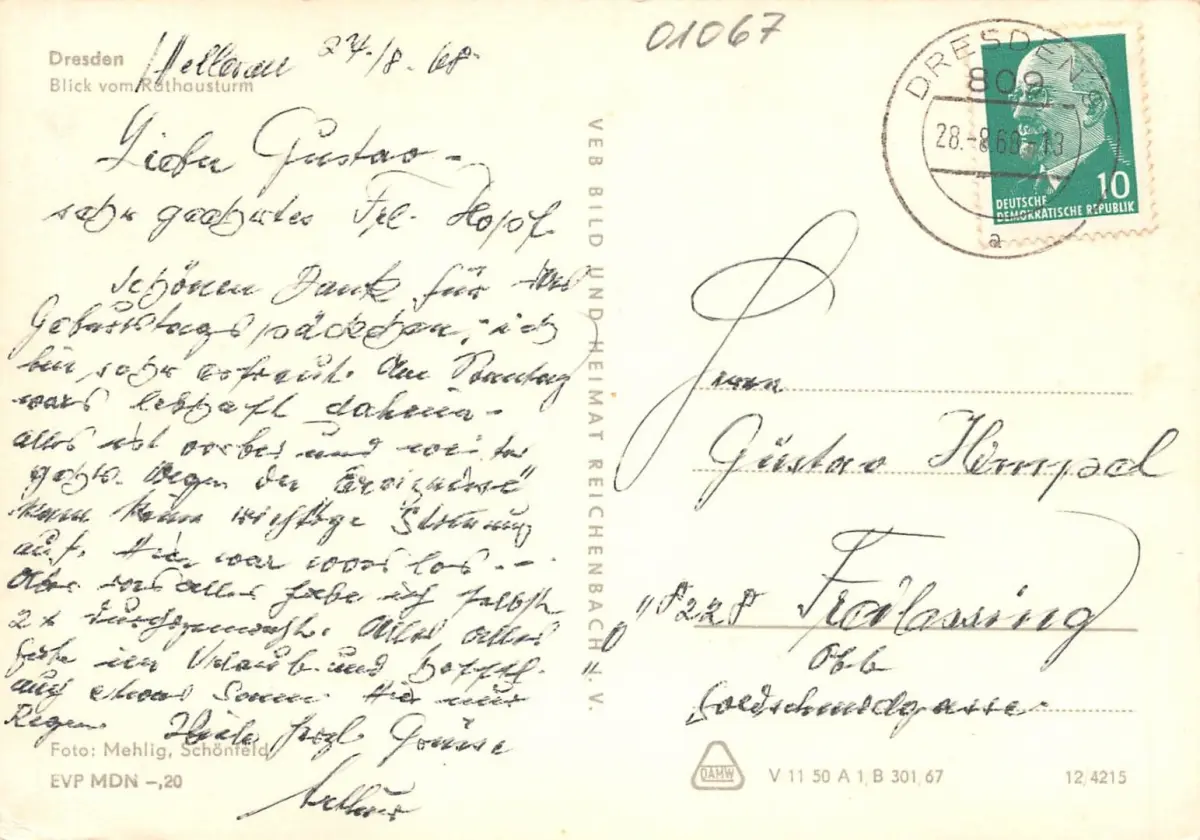 Dresden
Blick vom Rathausturm
Hellerau 27./8. 68.
Lieber Gustav -
sehr geehrtes Frl.
schönen Dank für das
Geburtstagspäckchen, ich
bin sehr erfreut. Am Sonntag
wars lebhaft daheim -
alles ist vorbei und weiter
gehts. Wegen der Ereignisse
kam keine richtige Stimmung
auf. Hier war was los. --
das alles habe ich selbst
2 x durchgemacht. Alles alles
Gute im Urlaub und hofftl.
auch etwas Sonne. Hier nur
Regen. Viele herzl. Grüsse
Arthur
Foto: Mehlig, Schönfeld
EVP MDN –,20
VEB BILD UND HEIMAT REICHENBACH i. V.
01067
DRESDEN
809
28.-8.68.-13
a
10
DEUTSCHE
DEMOKRATISCHE REPUBLIK
Herrn
Gustav Hempel
"8228 Freilassing"
Obb
Goldschmiedgasse
DAMW
V 11 50 A 1, B 301, 67
12/4215